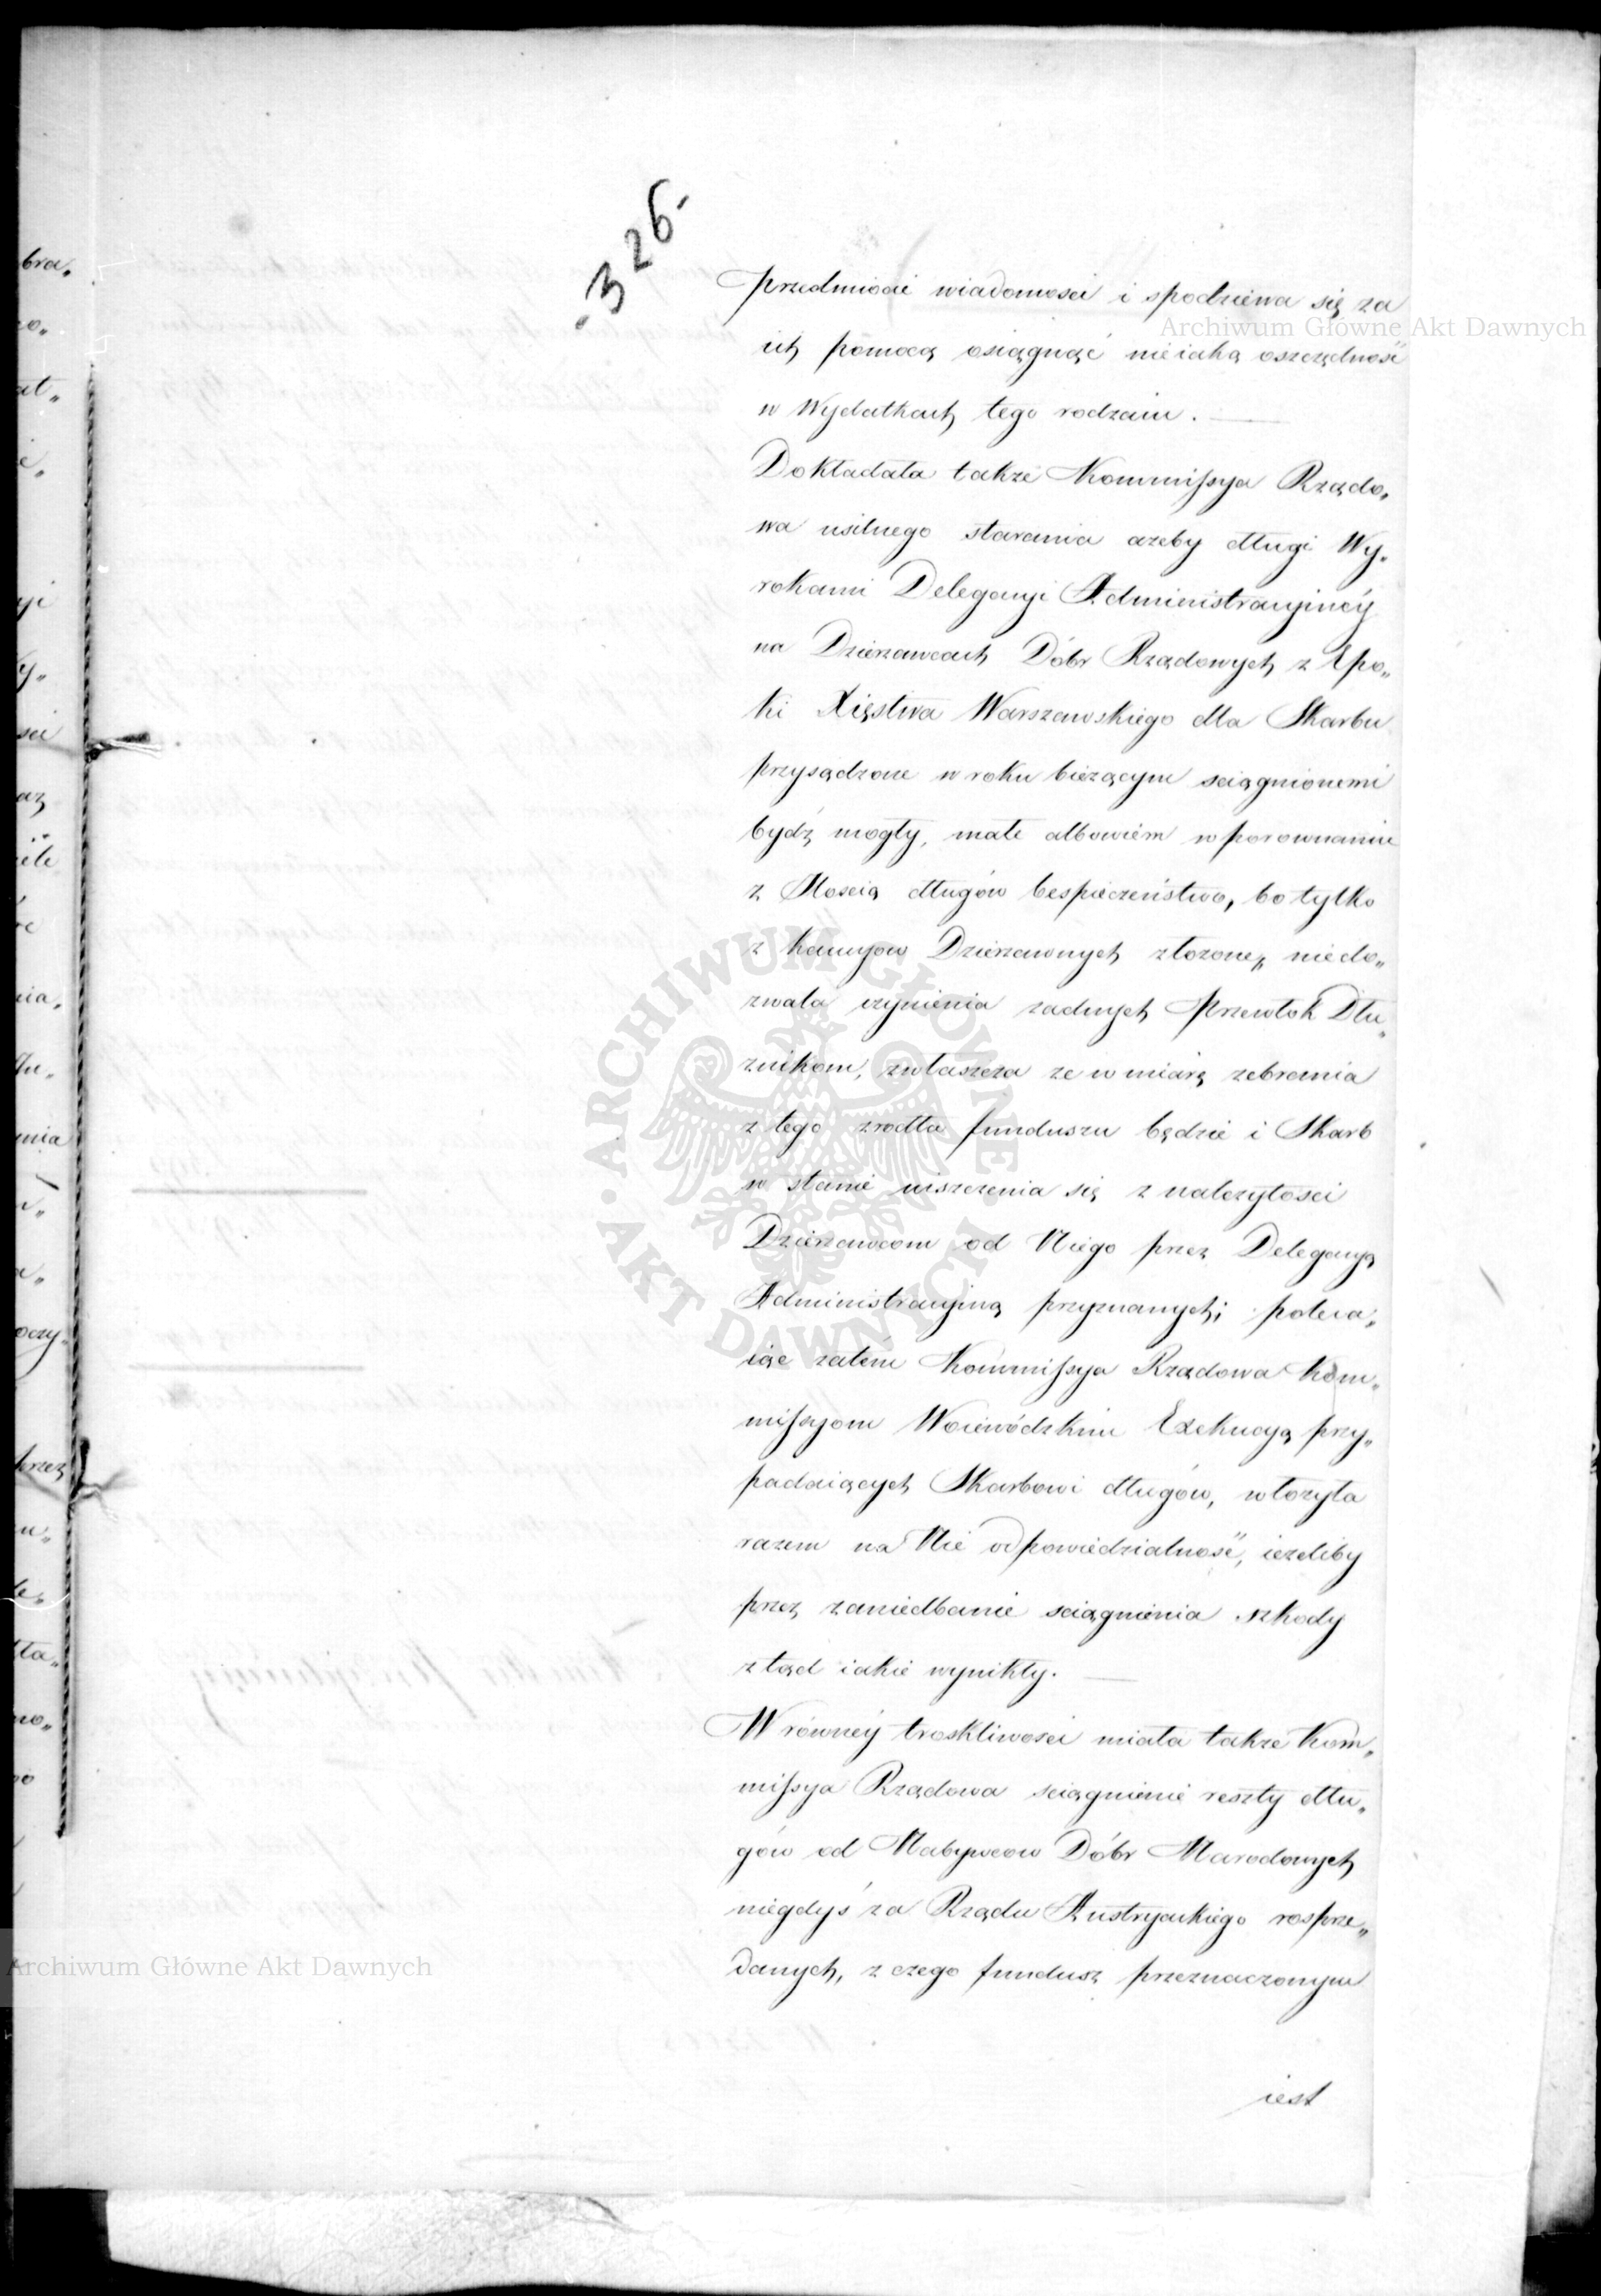 - 326 -
przedmiocie wiadomosci i spodziewa się za
ich pomocą osiągnąć nieiaką oszczędność
w Wydatkach tego rodzaiu. —
Dokładała także Kommissya Rządo„
wa usilnego starania azeby długi Wy„
rokami Delegacyi Administracyinéy
na Dzierzawcach Dóbr Rządowych z Epo„
ki Xięstwa Warszawskiego dla Skarbu
przysądzone w roku bieżącym sciągnionemi
bydź mogły, małe albowiém w porownaniu
z Iloscią długów bespieczeństwo, bo tylko
z kaucyow Dzierzawnych złozone, niedo„
zwala czynienia zadnych przewłok Dłu„
znikom, zwłaszcza ze w miarę zebrania
z tego zrodła funduszu będzie i Skarb
w stanie uiszczenia się z nalezytosci
Dzierzawcom od Niego przez Delegacyą
Administracyiną przyznanych; poleca„
iąc zatém Kommissya Rządowa Kom„
missyom Woiewódzkim Exekucyą przy„
padaiących Skarbowi długów, włozyła
razem na Nie odpowiedzialność, iezeliby
przez zaniedbanie sciągnienia szkody
ztąd iakie wynikły. —
W równéy troskliwosci miała także Kom„
missya Rządowa sciągnienie reszty dłu„
gów od Nabywcow Dóbr Narodowych
niegdyś za Rządu Austryackiego rosprze„
danych, z czego fundusz przeznaczonym
iest
bra„
zo„
at„
yi
y„
sci
ile
nia„
mia
oczy„
przez
u„
le„
ła„
no„
Archiwum Główne Akt Dawnych
ARCHIWUM GŁÓWNE AKT DAWNYCH
Archiwum Główne Akt Dawnych